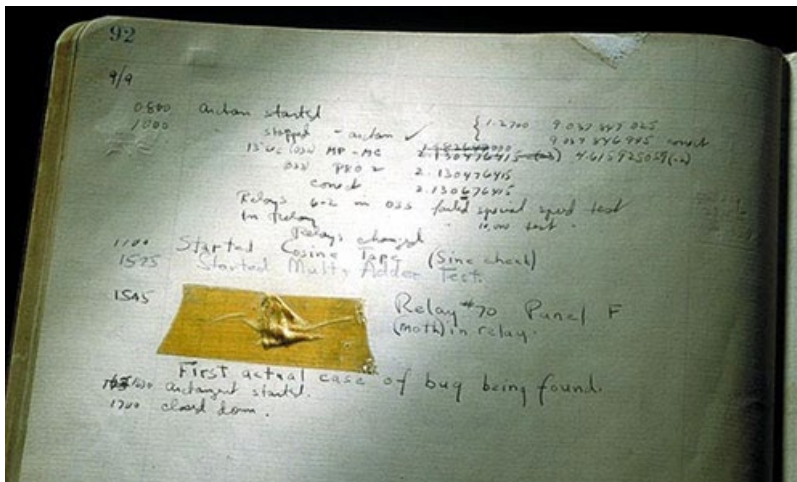 92
9/9
0800 antan started
1000 stopped - antan ✓ { 1.2700 9.037 847 025
9.037 846 995 correct
13"uc (032) MP - MC 2.130476415 (-3) 4.615925059(-2)
(033) PRO 2 2.130476415
correct 2.130676415
Relays 6-2 in 033 failed special speed test
In Relay 10,000 test .
Relays changed
1100 Started Cosine Tape (Sine check)
1525 Started Mult + Adder Test.
1545 Relay #70 Panel F
(moth) in relay.
First actual case of bug being found.
1630 antangent started.
1700 closed down.